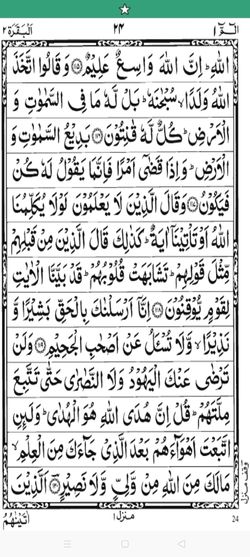 الٓمّٓ ١ ٢٤ البقرة ٢
اللّٰهِ ؕ اِنَّ اللّٰهَ وَاسِعٌ عَلِیْمٌ ۝۱۱۵ وَ قَالُوا اتَّخَذَ
اللّٰهُ وَلَدًا ۙ سُبْحٰنَهٗ ؕ بَلْ لَّهٗ مَا فِی السَّمٰوٰتِ وَ
الْاَرْضِ ؕ كُلٌّ لَّهٗ قٰنِتُوْنَ ۝۱۱۶ بَدِیْعُ السَّمٰوٰتِ وَ
الْاَرْضِ ؕ وَ اِذَا قَضٰۤی اَمْرًا فَاِنَّمَا یَقُوْلُ لَهٗ كُنْ
فَیَكُوْنُ ۝۱۱۷ وَ قَالَ الَّذِیْنَ لَا یَعْلَمُوْنَ لَوْ لَا یُكَلِّمُنَا
اللّٰهُ اَوْ تَاْتِیْنَاۤ اٰیَةٌ ؕ كَذٰلِكَ قَالَ الَّذِیْنَ مِنْ قَبْلِهِمْ
مِّثْلَ قَوْلِهِمْ ؕ تَشَابَهَتْ قُلُوْبُهُمْ ؕ قَدْ بَیَّنَّا الْاٰیٰتِ
لِقَوْمٍ یُّوْقِنُوْنَ ۝۱۱۸ اِنَّاۤ اَرْسَلْنٰكَ بِالْحَقِّ بَشِیْرًا وَّ
نَذِیْرًا ۙ وَّ لَا تُسْـَٔلُ عَنْ اَصْحٰبِ الْجَحِیْمِ ۝۱۱۹ وَ لَنْ
تَرْضٰی عَنْكَ الْیَهُوْدُ وَ لَا النَّصٰرٰی حَتّٰی تَتَّبِعَ
مِلَّتَهُمْ ؕ قُلْ اِنَّ هُدَی اللّٰهِ هُوَ الْهُدٰی ؕ وَ لَىِٕنِ
اتَّبَعْتَ اَهْوَآءَهُمْ بَعْدَ الَّذِیْ جَآءَكَ مِنَ الْعِلْمِ ۙ
مَا لَكَ مِنَ اللّٰهِ مِنْ وَّلِیٍّ وَّ لَا نَصِیْرٍ ۝۱۲۰ اَلَّذِیْنَ
وقف منزل
اٰتَیْنٰهُمُ
منزل ۱
24